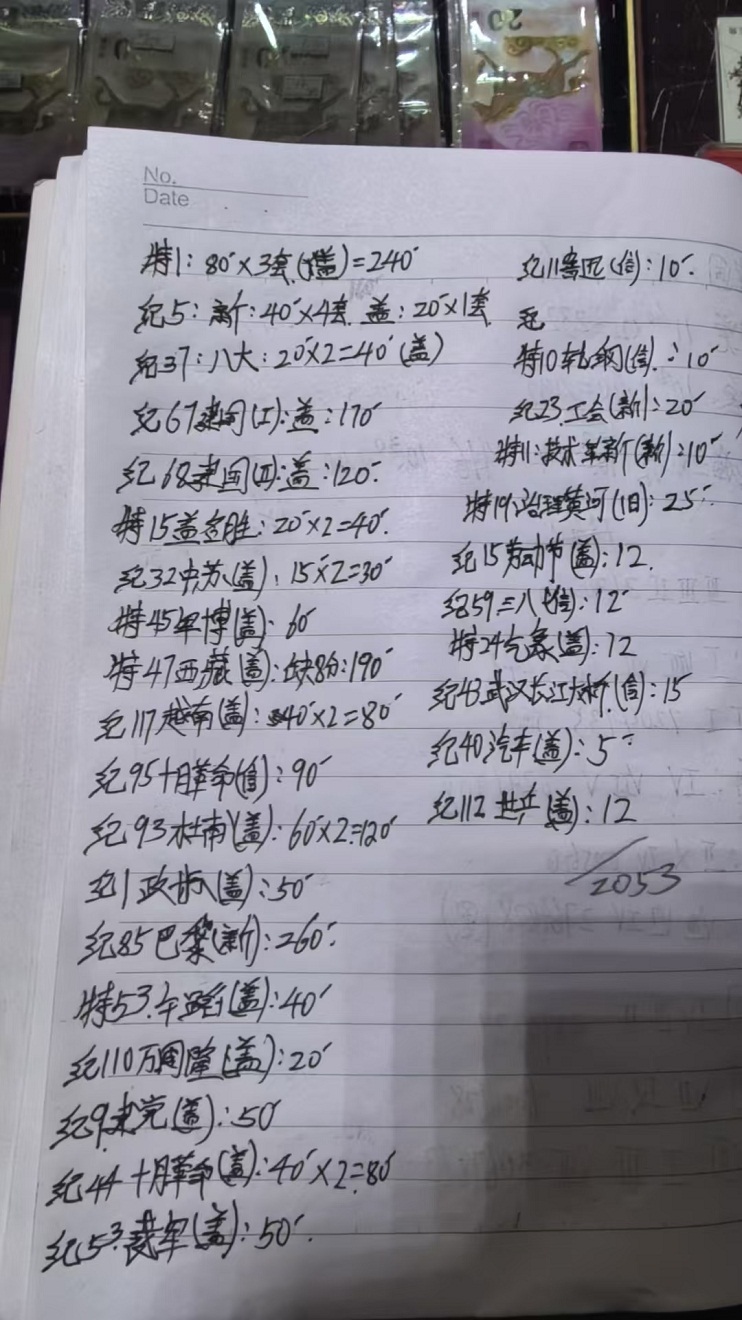 20
No.
Date
特1: 80×3套(盖)=240
纪5: 新: 40×4套. 盖: 20×1套
纪37: 八大: 20×2=40(盖)
纪67建国(I): 盖: 170
纪68建国(II): 盖: 120.
特15盖名胜: 20×2=40.
纪32中苏(盖): 15×2=30
特45军博(盖): 60
特47西藏(盖): 缺8分: 190
纪117越南(盖): 40×2=80
纪95十月革命(信): 90
纪93杜甫(盖): 60×2=120
纪1政协(盖): 50
纪85巴黎(新): 260.
特53.(盖): 40
纪110万隆(盖): 20
纪9.(盖): 50
纪44十月革命(盖): 40×2=80
纪53.裁军(盖): 50.
纪11(信): 10.
纪
特10轧钢(信): 10
纪23工会(新): 20
特11:技术革新(新): 10
特19治理黄河(旧): 25
纪15劳动节(盖): 12.
纪59三八(信): 12
特24气象(盖): 12
纪43武汉长江大桥(信): 15
纪40汽车(盖): 5
纪112(盖): 12
/2053